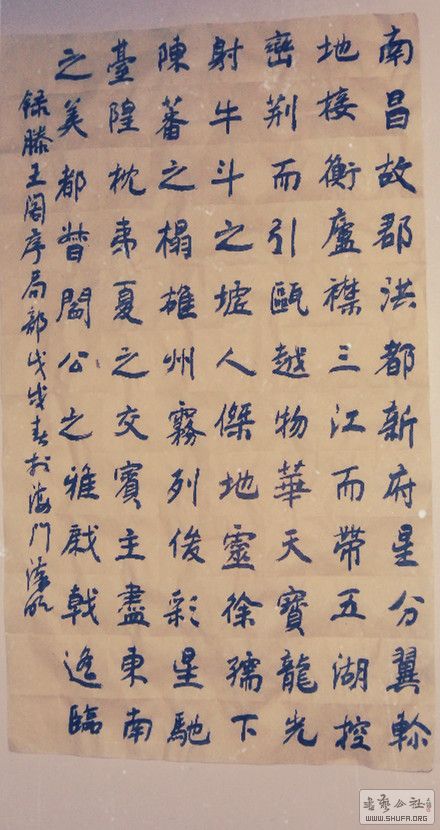 南昌故郡洪都新府星分翼軫
地接衡廬襟三江而帶五湖控
巒荆而引甌越物華天寶龍光
射牛斗之墟人傑地靈徐孺下
陳蕃之榻雄州霧列俊彩星馳
臺隍枕夷夏之交賓主盡東南
之美都督閻公之雅戲戟遙臨
録滕王阁序局部戊戌春於海門
书艺公社
WWW.SHUFA.ORG